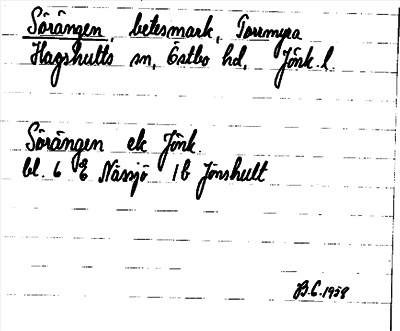 Sörängen, betesmark, Torrmyra
Hagshults sn, Östbo hd, Jönk. l.
Sörängen ek Jönk.
bl. 6 E Nässjö 1b Jönshult
B.C. 1958